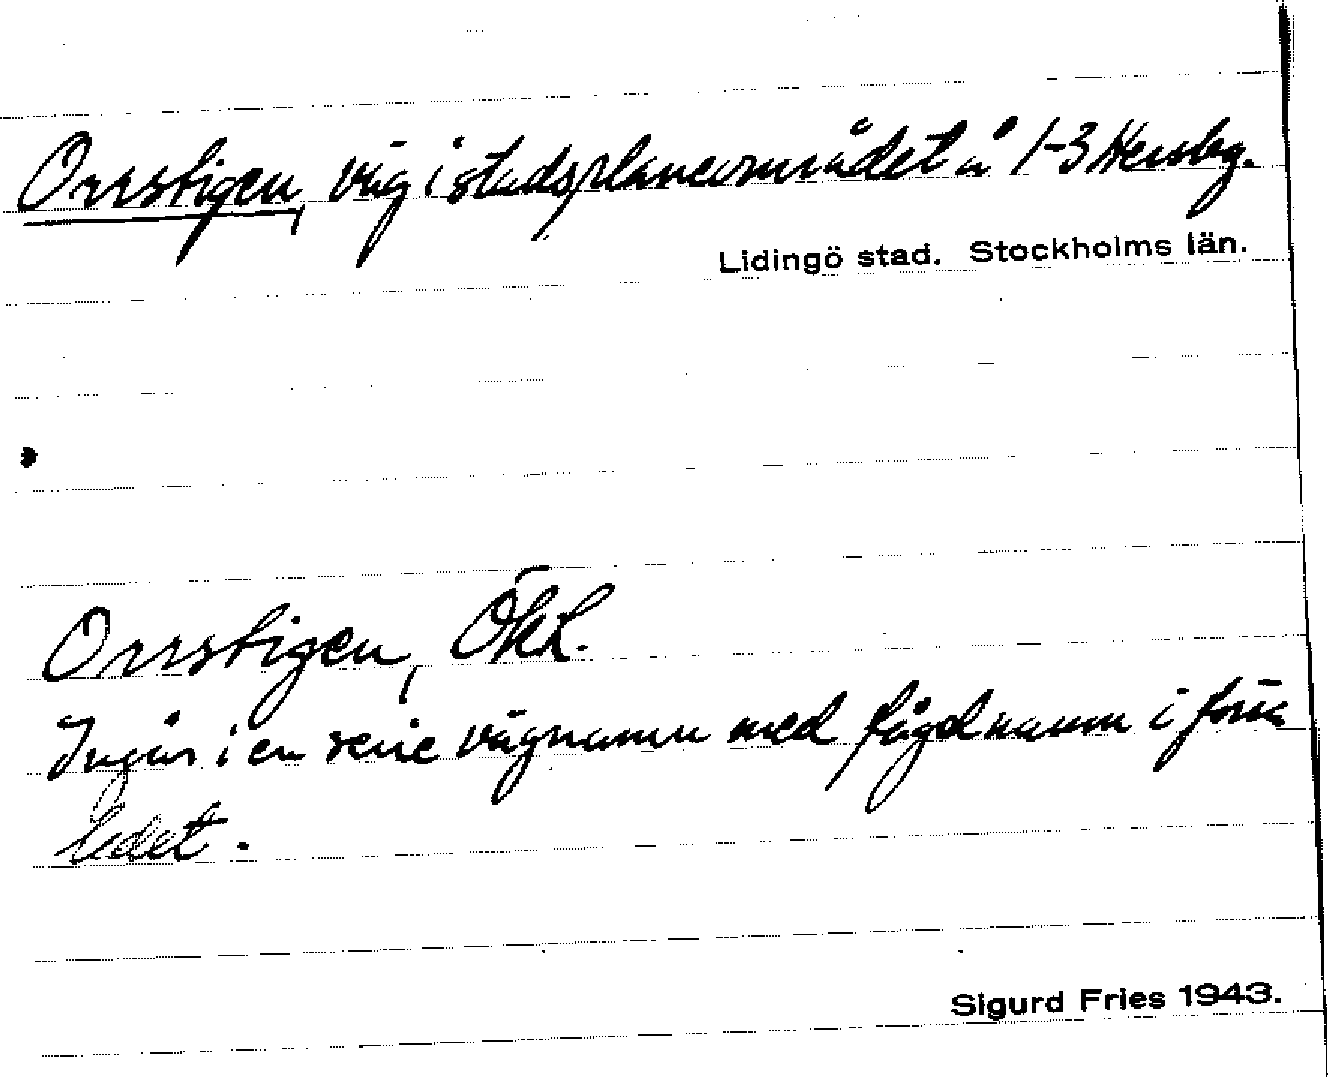 Orrstigen, väg i stadsplaneområdet å 1-3 Hersby.
Lidingö stad. Stockholms län.
Orrstigen, Ökk.
Ingår i en serie vägnamn med fågelnamn i första
ledet.
Sigurd Fries 1943.